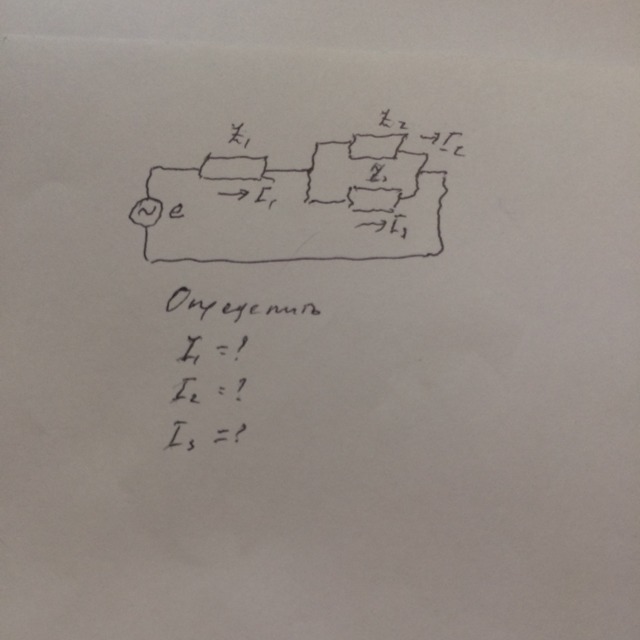 Z₁
Z₂
→I₂
Z₃
→I₁
e
→I₃
Определить
I₁ = ?
I₂ = ?
I₃ = ?